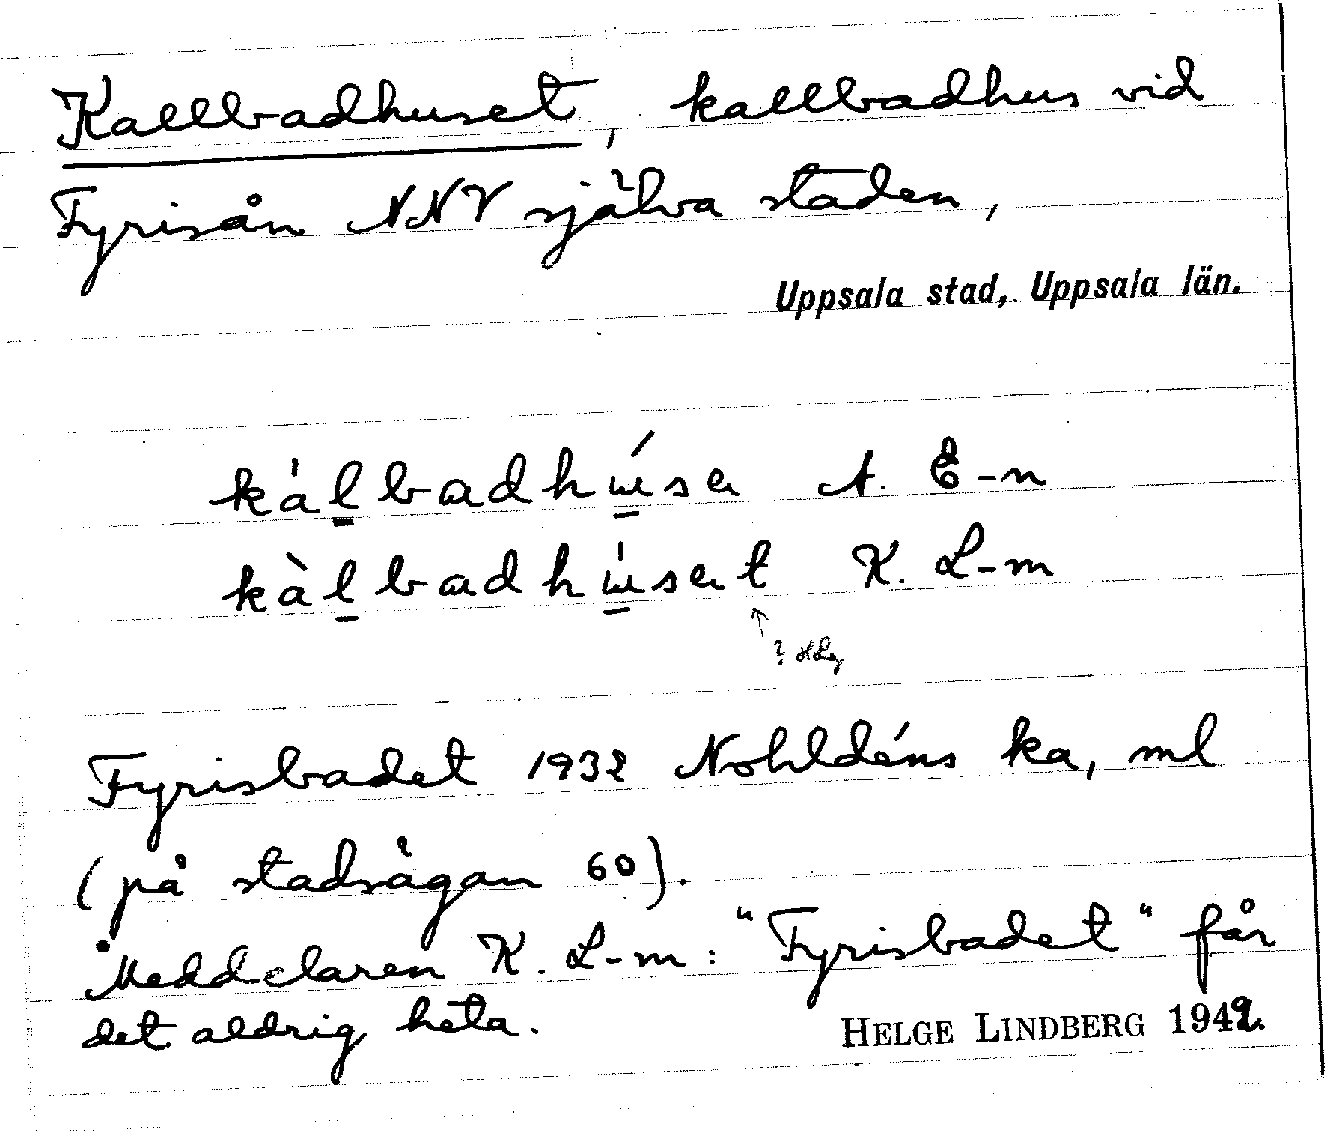 Kallbadhuset, kallbadhus vid
Fyrisån NNV själva staden,
Uppsala stad, Uppsala län.
kálbadhúsə A. E-n
kàlbadhúsət K. L-m
?
Fyrisbadet 1932 Nohldéns ka, ml
(på stadsägan 60).
Meddelaren K. L-m: "Fyrisbadet" får
det aldrig heta.
HELGE LINDBERG 1942.